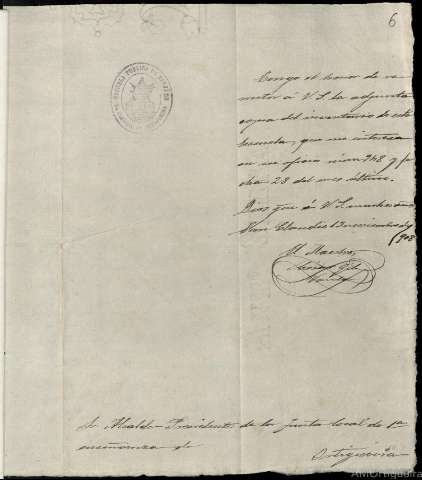 6
ESCUELA PUBLICA DE
Tengo el honor de re
mitir á V. S. la adjunta
copia del inventario de esta
Escuela, que me interesa
en su oficio núm 248 y fe
cha 28 del mes último.
Dios gue á V. S. muchos años
San Claudio 13 noviembre de
1908
El Maestro,
Sr. Alcalde-Presidente de la Junta local de 1ª
enseñanza de
Ortigueira
AMOrtigueira